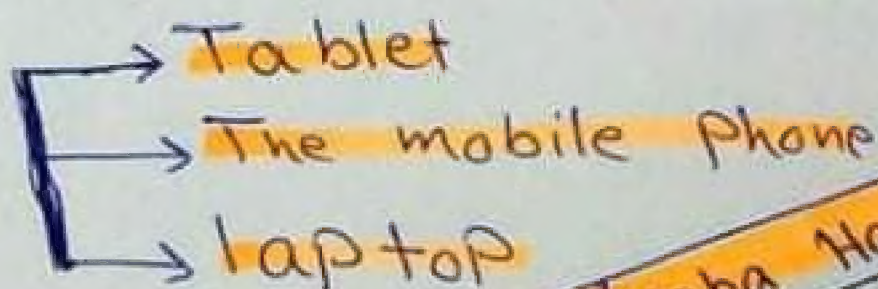 Tablet
The mobile phone
laptop